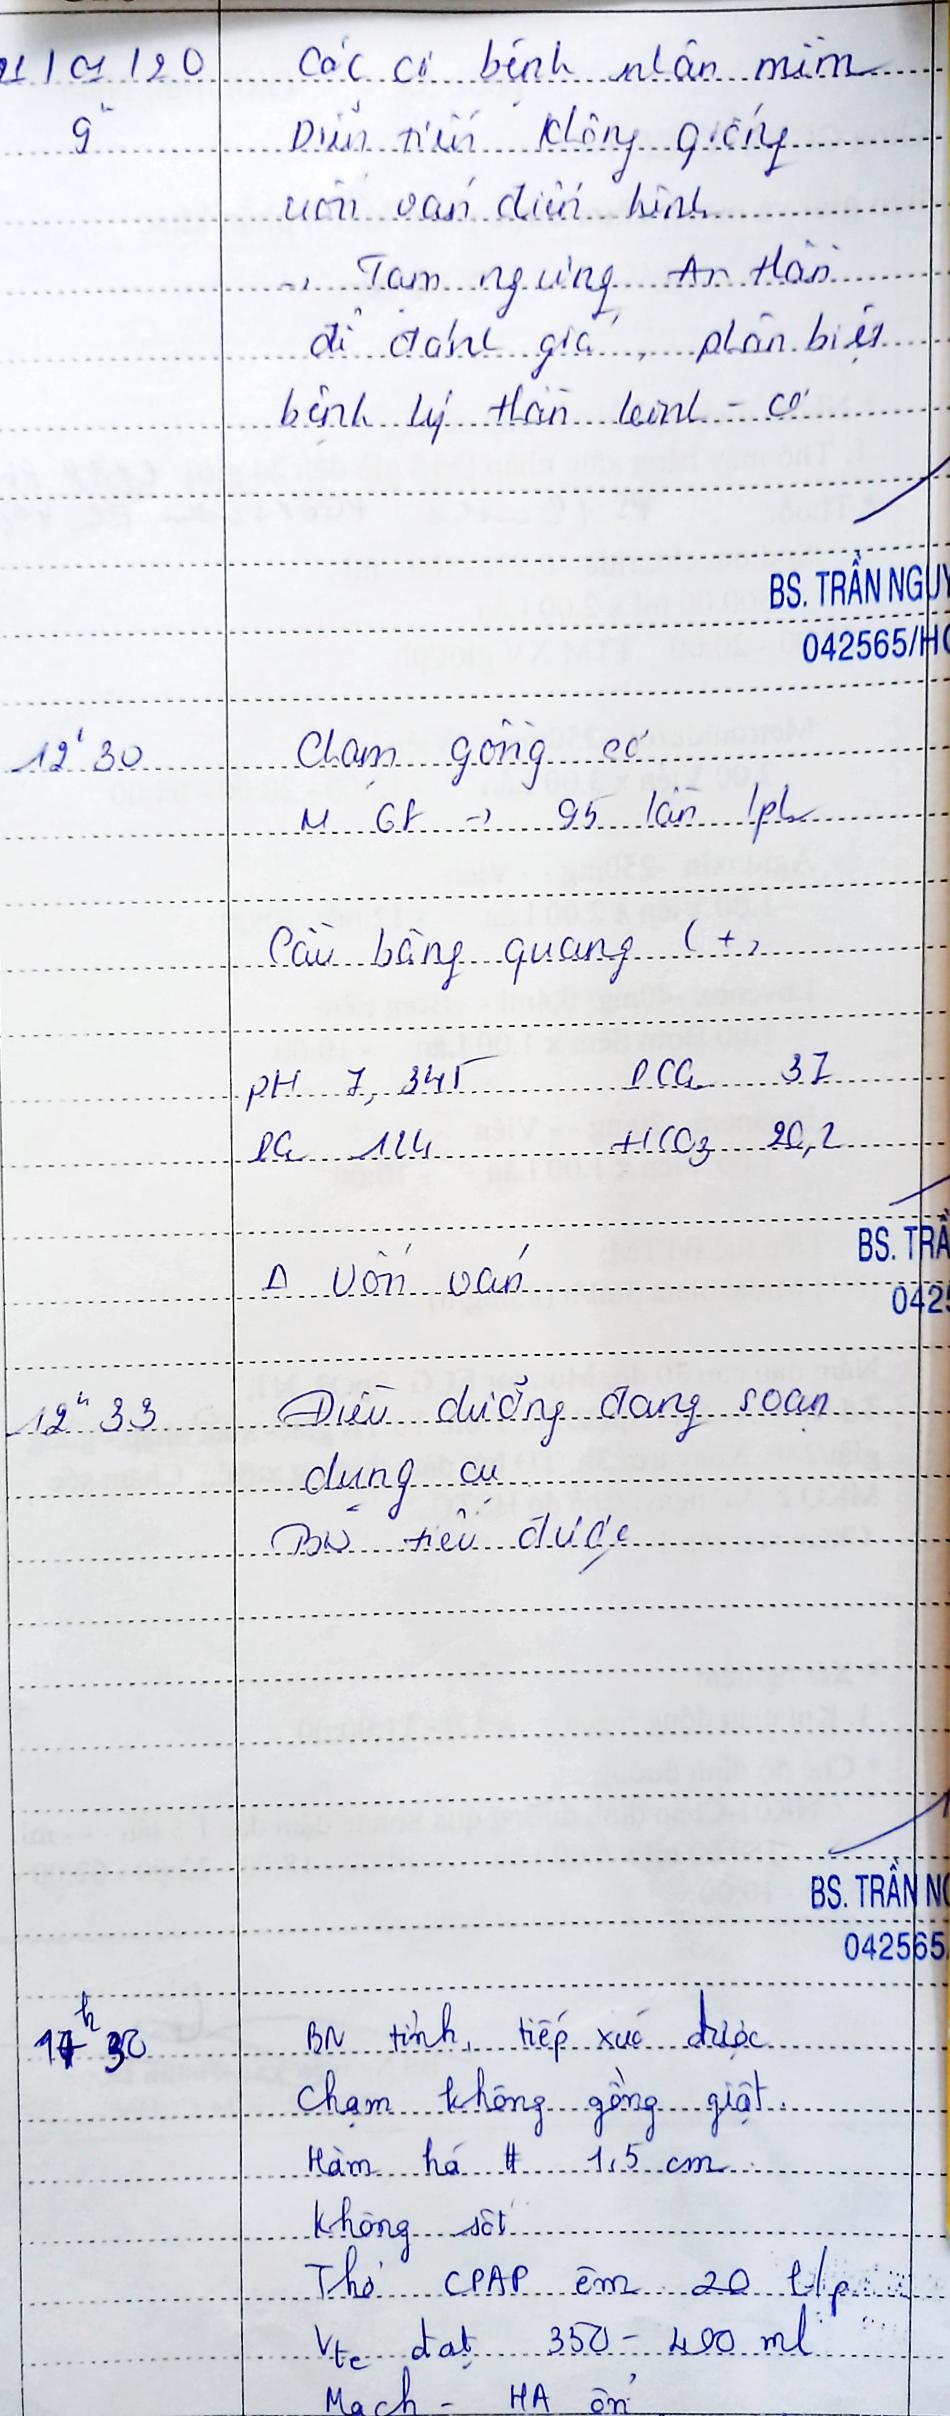 21/9/20 Các cơ bệnh nhân mềm
9h Diễn tiến không giống
uốn ván điển hình
-> Tạm ngưng An thần
để đánh giá, phân biệt
bệnh lý thần kinh - cơ
BS. TRẦN NGUY
042565/HC
12h30 Chạm gồng cơ
M 68 -> 95 lần /ph
Cầu bàng quang (+)
pH 7,345 PCO2 37
PO2 124 HCO3 20,2
BS. TRẦ
0425
Δ Uốn ván
12h33 Điều dưỡng đang soạn
dụng cụ
BN tiểu được
BS. TRẦN NG
042565
17h30 BN tỉnh, tiếp xúc được
Chạm không gồng giật.
Hàm há # 1,5 cm
Không sốt
Thở CPAP êm 20 l/p
Vte đạt 350 - 400 ml
Mạch - HA ổn